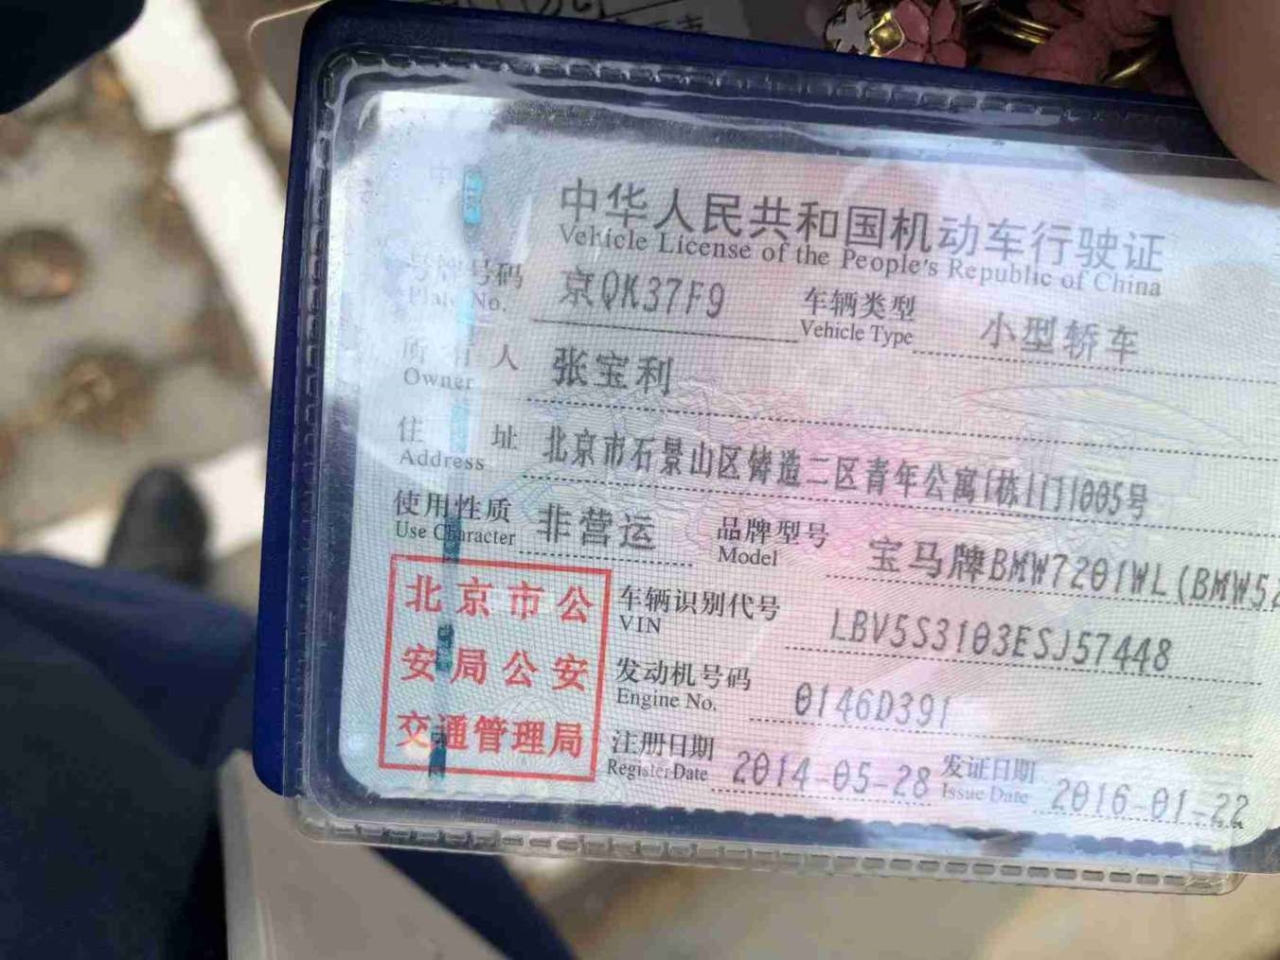 中华人民共和国机动车行驶证
Vehicle License of the People's Republic of China
号牌号码 京QK37F9 车辆类型 小型轿车
Plate No. Vehicle Type
所有人 张宝利
Owner
住址 北京市石景山区铸造二区青年公寓1栋1门1005号
Address
使用性质 非营运 品牌型号 宝马牌BMW7201WL(BMW5
Use Character Model
北京市公
安局公安
交通管理局
车辆识别代号 LBV5S3103ESJ57448
VIN
发动机号码 0146D391
Engine No.
注册日期 2014-05-28 发证日期 2016-01-22
Register Date Issue Date